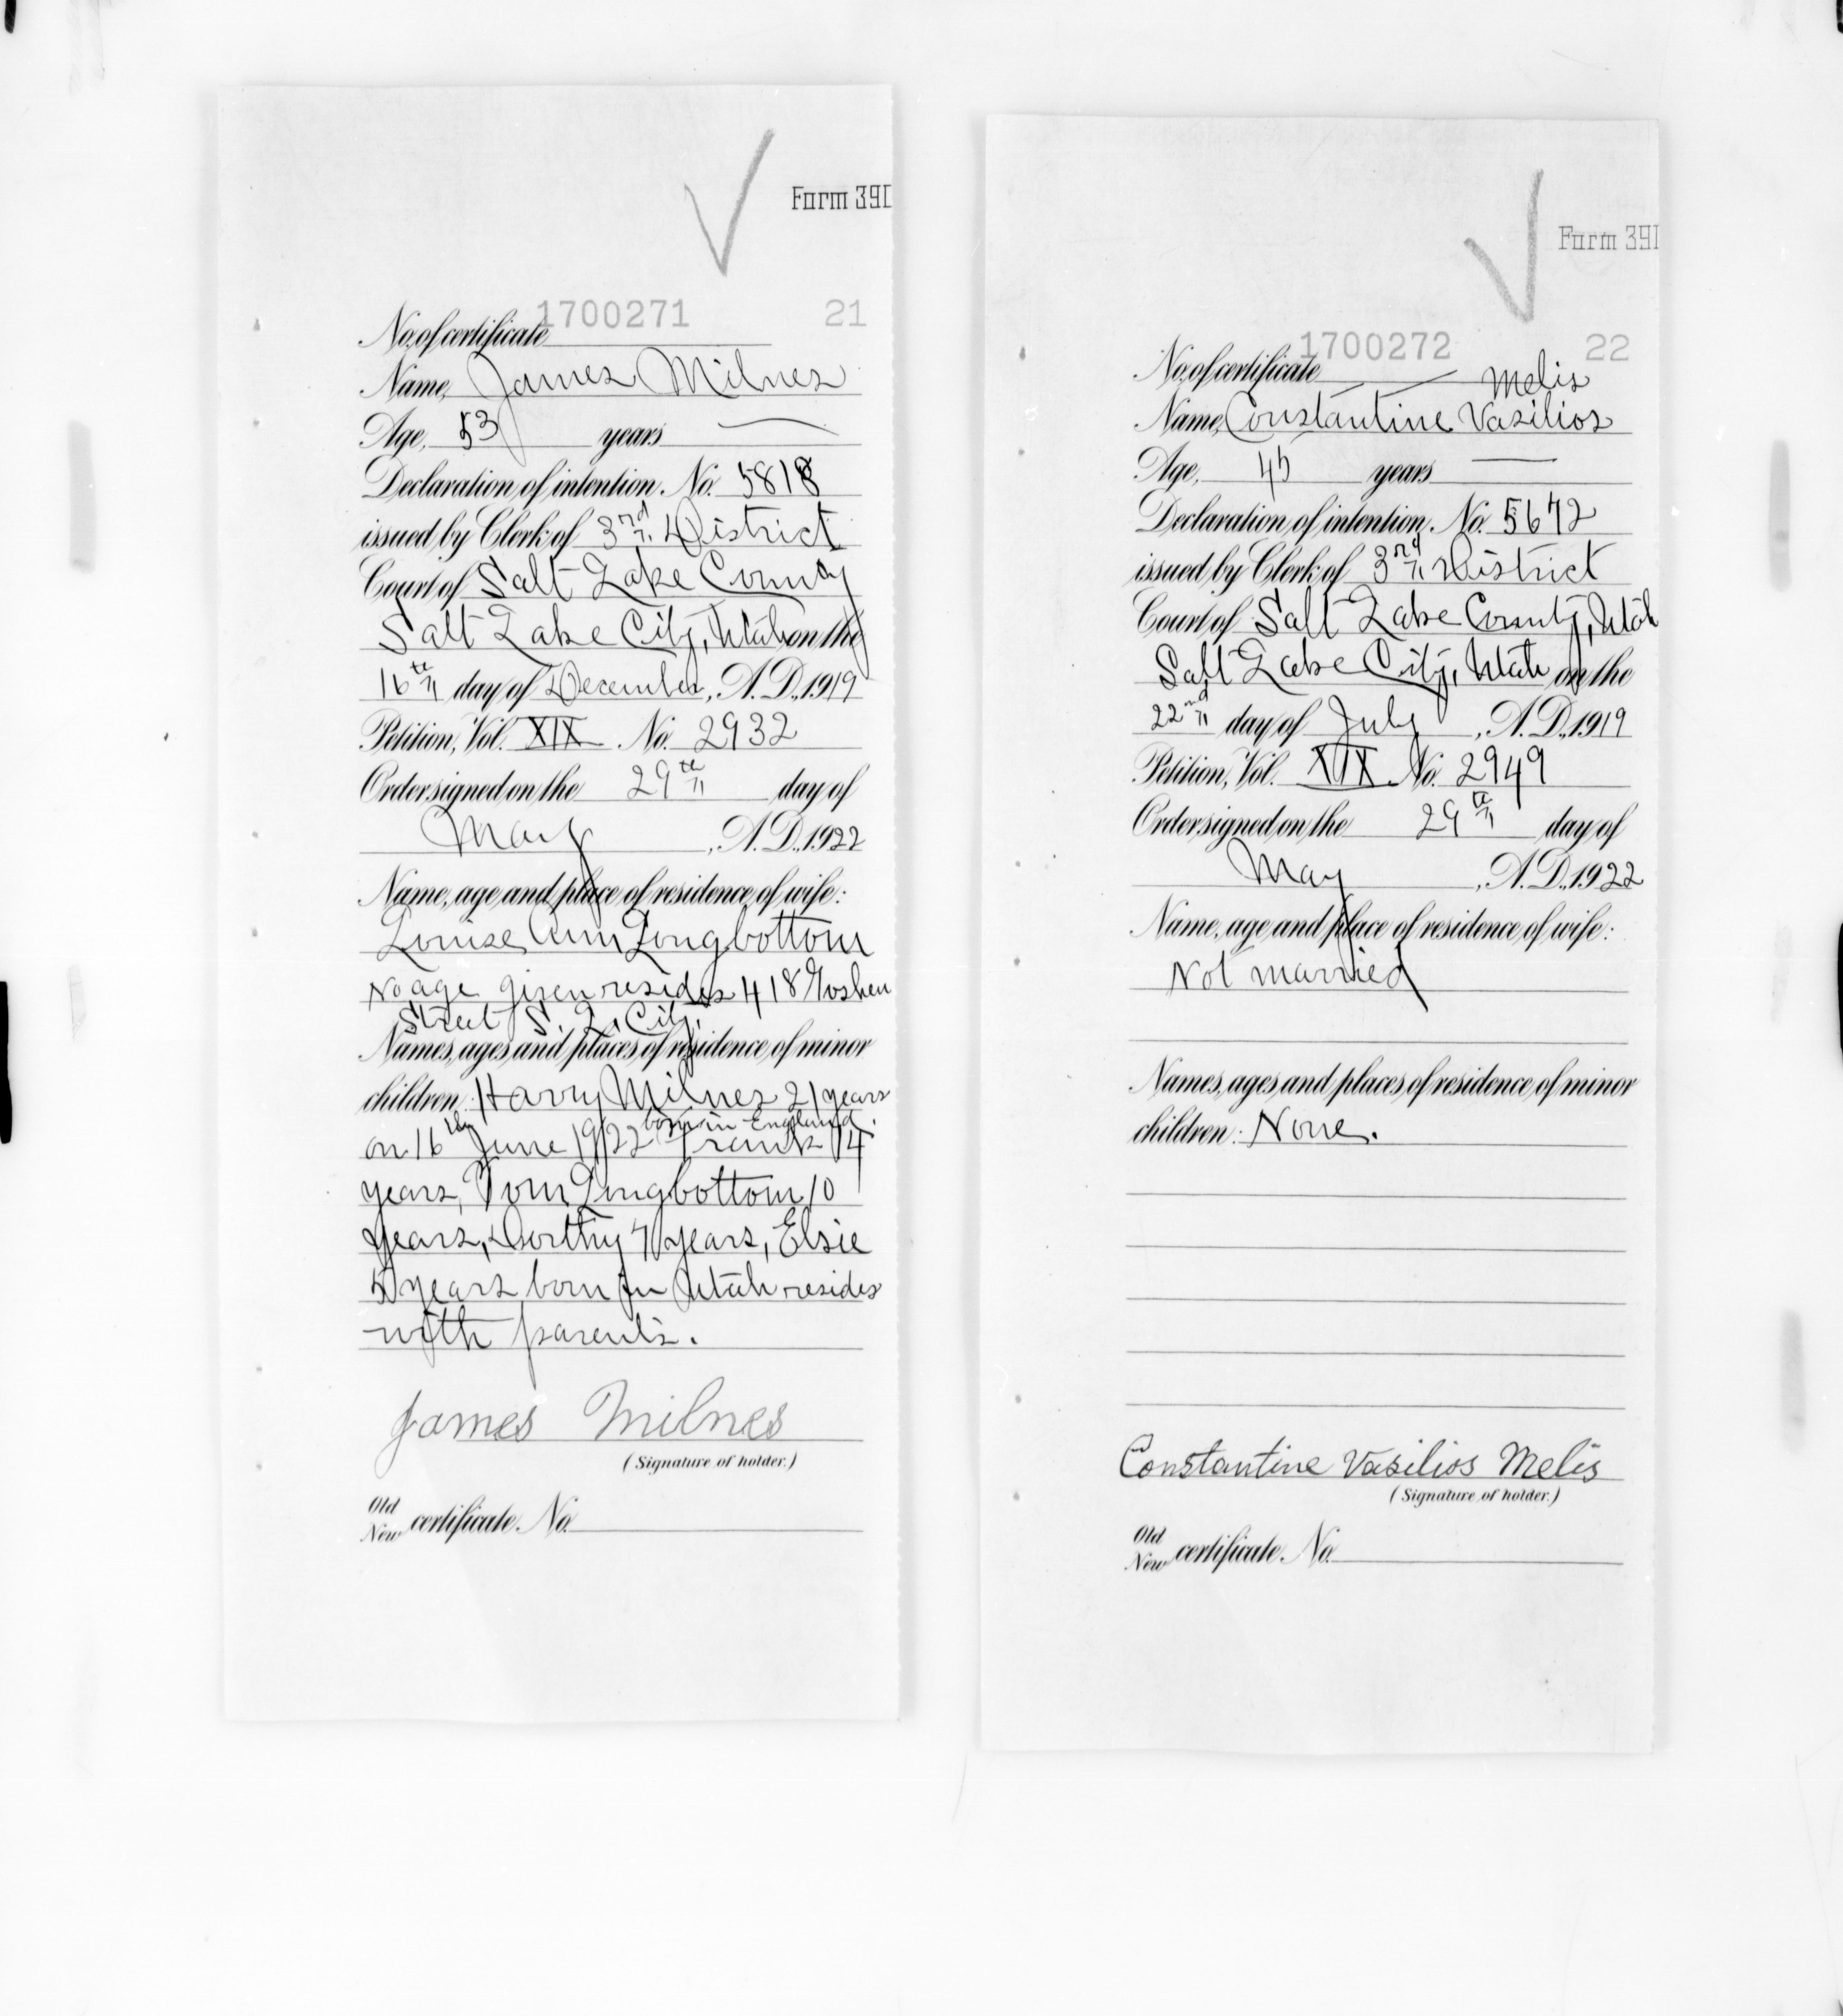 Form 39
1700271 21
No. of certificate
Name, James Milnes
Age, 53 years
Declaration of intention, No. 5818
issued by Clerk of 3rd District
Court of Salt Lake County
Salt Lake City, Utah on the
16th day of December, A.D., 1919
Petition, Vol. XIX No. 2932
Order signed on the 29th day of
May, A.D., 1922
Name, age and place of residence of wife:
Louise Ann Longbottom
No age given resides 418 Goshen
Street S. L. City.
Names, ages and places of residence of minor
children: Harry Milnes 21 years
born in England
on 16th June 1922 Frank 14
years, Tom Longbottom 10
years, Dorthy 7 years, Elsie
5 years born in Utah resides
with parents.
James Milnes
(Signature of holder.)
Old
New certificate No.
Form 39
1700272 22
No. of certificate
Melis
Name, Constantine Vasilios
Age, 45 years
Declaration of intention, No. 5672
issued by Clerk of 3rd District
Court of Salt Lake County, Utah
Salt Lake City, Utah on the
22nd day of July, A.D., 1919
Petition, Vol. XIX No. 2949
Order signed on the 29th day of
May, A.D., 1922
Name, age and place of residence of wife:
Not married
Names, ages and places of residence of minor
children: None.
Constantine Vasilios Melis
(Signature of holder.)
Old
New certificate No.